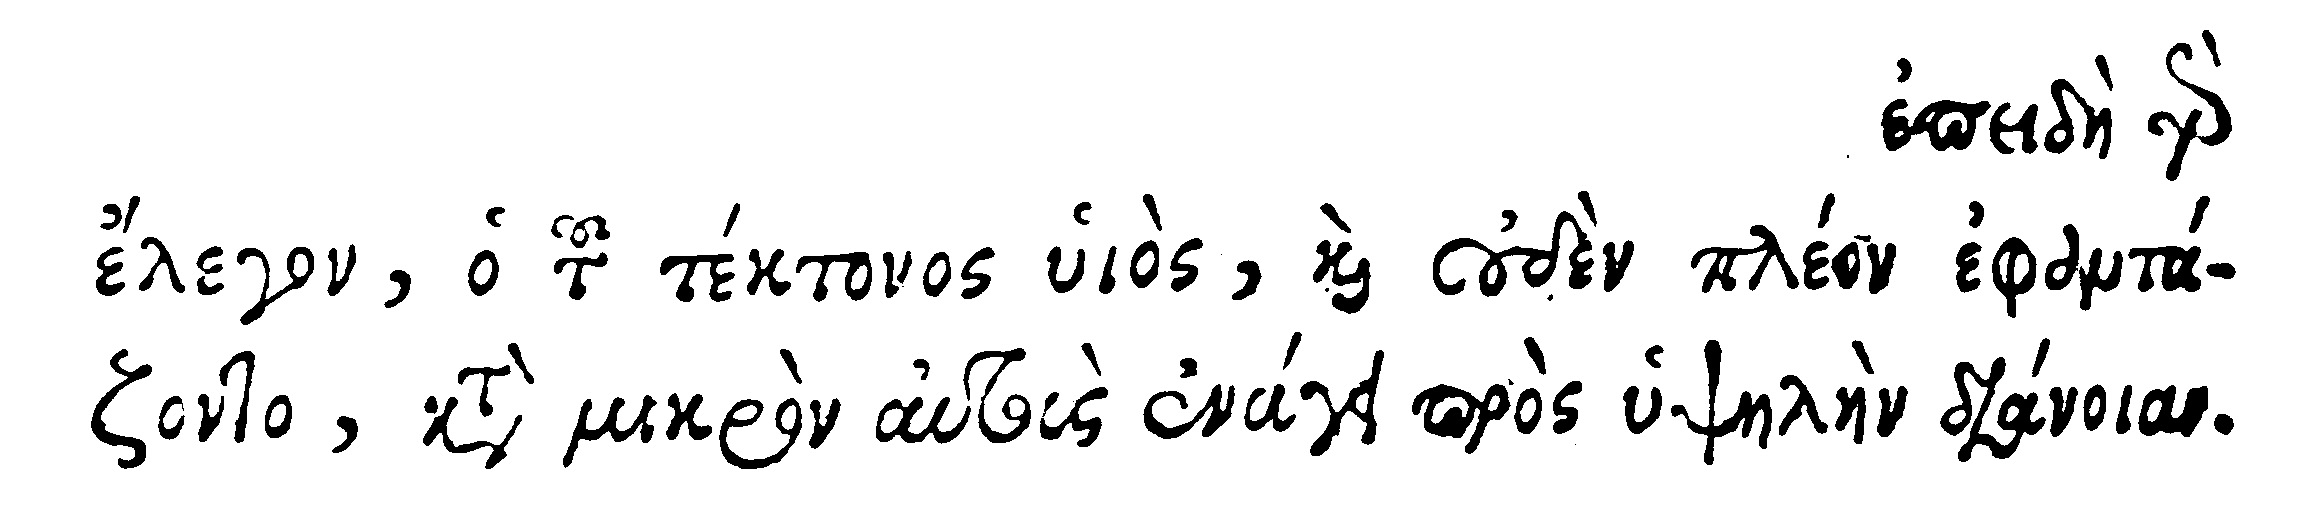 ἐπειδὴ γὰρ
ἔλεγον, ὁ τοῦ τέκτονος ὑιὸς, καὶ οὐδὲν πλέον ἐφαντά-
ζοντο, κατὰ μικρὸν αὐτοὺς ἀνάγει πρὸς ὑψηλὴν διάνοιαν.